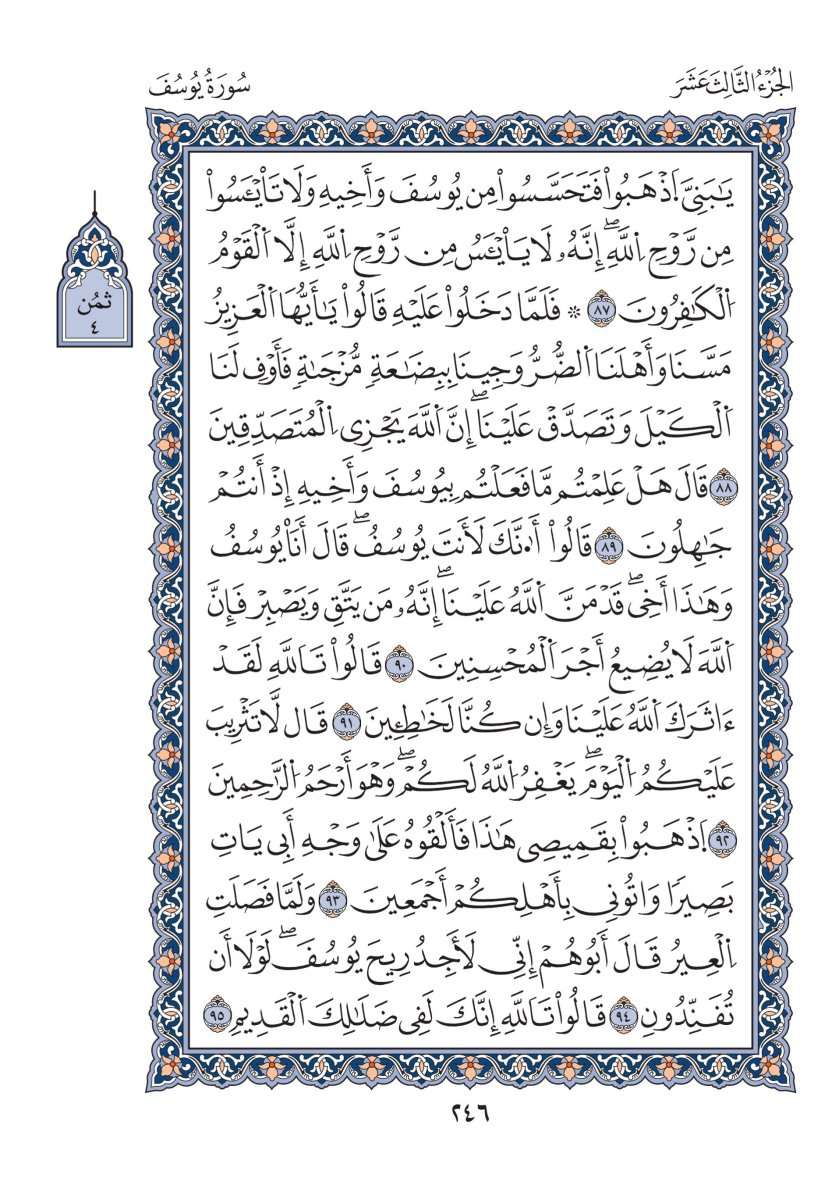 الجُزْءُ الثَّالِثَ عَشَرَ
سُورَةُ يُوسُفَ
يَـٰبَنِىَّ اَ۪ذْهَبُواْ فَتَحَسَّسُواْ مِن يُوسُفَ وَأَخِيهِ وَلَا تَاْيْـَٔسُواْ
مِن رَّوْحِ اِ۬للَّهِۖ إِنَّهُۥ لَا يَاْيْـَٔسُ مِن رَّوْحِ اِ۬للَّهِ إِلَّا اَ۬لْقَوْمُ
اُ۬لْكَـٰفِرُونَ ٨٧ ۞ فَلَمَّا دَخَلُواْ عَلَيْهِ قَالُواْ يَـٰٓأَيُّهَا اَ۬لْعَزِيزُ
مَسَّنَا وَأَهْلَنَا اَ۬لضُّرُّ وَجِينَا بِبِضَـٰعَةٍ مُّزْجَىٰةٍ فَأَوْفِ لَنَا
اَ۬لْكَيْلَ وَتَصَدَّقْ عَلَيْنَاۖ إِنَّ اَ۬للَّهَ يَجْزِى اِ۬لْمُتَصَدِّقِينَ
٨٨ قَالَ هَلْ عَلِمْتُم مَّا فَعَلْتُم بِيُوسُفَ وَأَخِيهِ إِذْ أَنتُمْ
جَـٰهِلُونَ ٨٩ قَالُواْ أَ•نَّكَ لَأَنتَ يُوسُفُۖ قَالَ أَنَا۠ يُوسُفُ
وَهَـٰذَا أَخِىۖ قَدْ مَنَّ اَ۬للَّهُ عَلَيْنَاۖ إِنَّهُۥ مَن يَتَّقِ وَيَصْبِرْ فَإِنَّ
اَ۬للَّهَ لَا يُضِيعُ أَجْرَ اَ۬لْمُحْسِنِينَ ٩٠ قَالُواْ تَاللَّهِ لَقَدْ
ءَاثَرَكَ اَ۬للَّهُ عَلَيْنَا وَإِن كُنَّا لَخَـٰطِـِٕينَ ٩١ قَال لَّا تَثْرِيبَ
عَلَيْكُمُ اُ۬لْيَوْمَۖ يَغْفِرُ اُ۬للَّهُ لَكُمْۖ وَهْوَ أَرْحَمُ اُ۬لرَّٰحِمِينَ
٩٢ اَ۪ذْهَبُواْ بِقَمِيصِى هَـٰذَا فَأَلْقُوهُ عَلَىٰ وَجْهِ أَبِى يَاتِ
بَصِيرًا وَاتُونِى بِأَهْلِكُمْ أَجْمَعِينَ ٩٣ وَلَمَّا فَصَلَتِ
اِ۬لْعِيرُ قَالَ أَبُوهُمْ إِنِّى لَأَجِدُ رِيحَ يُوسُفَۖ لَوْلَا أَن
تُفَنِّدُونِ ٩٤ قَالُواْ تَاللَّهِ إِنَّكَ لَفِى ضَلَـٰلِكَ اَ۬لْقَدِيمِ ٩٥
ثمُن
٤
٢٤٦